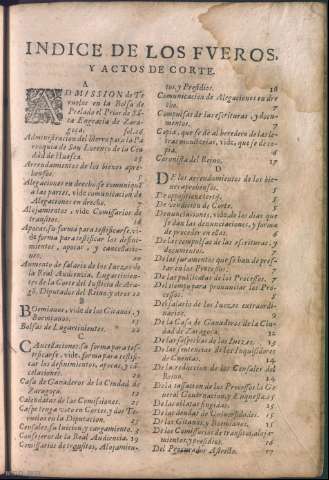 INDICE DE LOS FVEROS,
Y ACTOS DE CORTE.
A
ADMISSION de Te-
rueles en la Bolsa de
Prelado el Prior de Sã
ta Engracia de Zara-
goça. fol. 16
Administracion del
quia de San Lorenzo de la Ciu
dad de Huesca. 25
Arrendamentos de los bienes apre-
hensos. 5
Alegaciones en derecho se comuniquẽ
a las partes, vide comunicacion de
Alegaciones en drecho. 7
Alojamientos, vide Comissarios de
transitos. 16
Apocas, su forma para testificarse, vi-
de forma para testificar los desisti-
mientos, apocas, y cancellacio-
nes. 20
Aumento de salarios de los Iuezes de
la Real Audiencia, Lugartinien-
tes de la Corte del Iusticia de Ara-
gõ, Diputados del Reyno y otros 22
B
Bornianos, vide de los Gitanos, y
Bornianos. 15
Bolsas de Lugartinientes. 22
C
Cancellaciones, su forma para tes-
tificarse, vide, forma para testifi-
car los desistimientos, apocas, y cã-
celaciones. 20
Casa de Ganaderos de la Ciudad de
Zaragoça. 12
Calendatas de las Comissiones. 25
Caspe tenga voto en Cortes, y dos Te-
ruelos en la Diputacion. 25
Censales, su luicion y cargamiento. 3
Consejeros de la Real Audiencia. 19
Comissarios de transitos, Alojamien-
tos, y Presidios. 16
Comunicacion de Alegaciones en dre
cho. 7
Compulsas de las escrituras, y docu-
mentos. 2
Copia, que se dè al heredero de las le-
tras monitorias, vide, que se de co-
pia. 6
Coronista del Reyno. 17
D
DE los arrendamientos de los bie-
nes aprehensos. 5
De apositione tertij. 5
De venditione de Corte. 5
Denunciaciones, vide, de los dias que
se dan las denunciaciones, y forma
de proceder en ellas. 6
De las compulsas de las escrituras, y
documentos. 2
De los juramentos que se han de pres-
tar en los Processos. 7
De las publicatas de los Processos. 7
Del tiempo para pronunciar los Pro-
cessos. 5
Del salario de los Iuezes extraordi-
narios. 9
De la Casa de Ganaderos de la Ciu-
dad de Zaragoça. 12
De las sospechas de los Iuezes. 13
De las sentencias de los Inquisidores
de Cuentas. 14
De la reduccion de los Censales del
Reyno. 14
De la tasacion de los Processos la Ge
neral Governacion y Enquestas. 25
De las alatas fingidas. 25
De las deudas de Vniuersidades. 15
De los Gitanos, y Bornianos. 15
De los Comissarios de transitos, aloja-
mientos, y presidios. 16
Del Procurador Astricto. 17